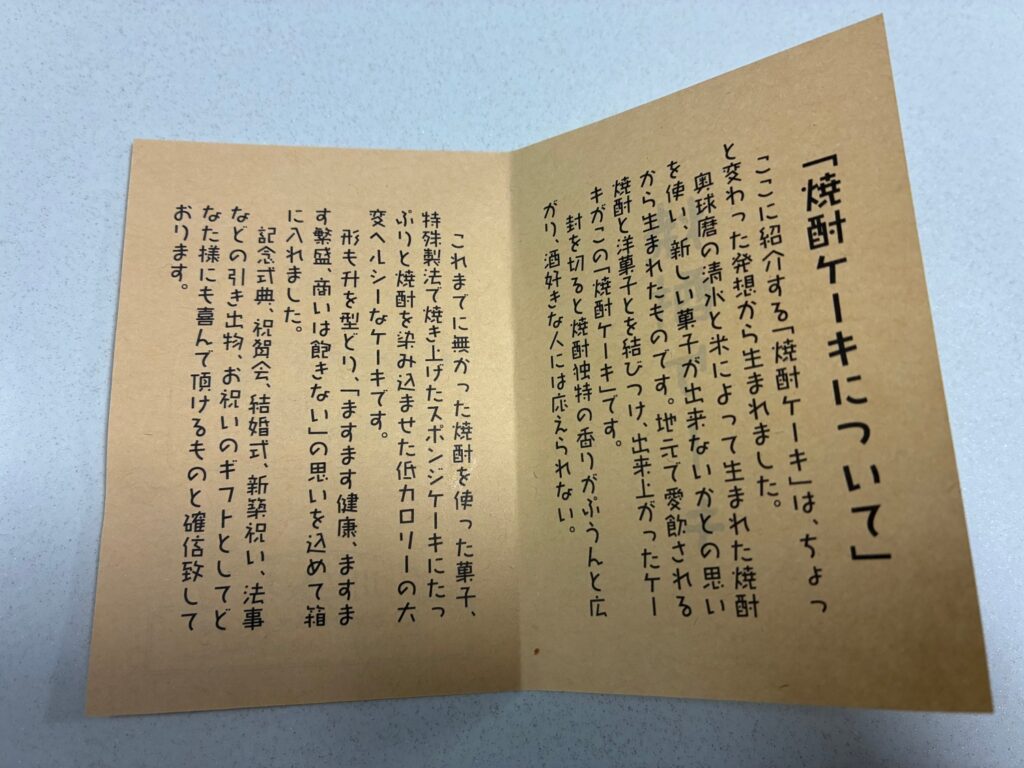 「焼酎ケーキについて」
ここに紹介する「焼酎ケーキ」は、ちょっ
と変わった発想から生まれました。
奥球磨の清水と米によって生まれた焼酎
を使い、新しい菓子が出来ないかとの思い
から生まれたものです。地元で愛飲される
焼酎と洋菓子とを結びつけ、出来上がったケー
キがこの「焼酎ケーキ」です。
封を切ると焼酎独特の香りがぷうんと広
がり、酒好きな人には応えられない。
これまでに無かった焼酎を使った菓子、
特殊製法で焼き上げたスポンジケーキにたっ
ぷりと焼酎を染み込ませた低カロリーの大
変ヘルシーなケーキです。
形も升を型どり、「ますます健康、ますま
す繁盛、商いは飽きない」の思いを込めて箱
に入れました。
記念式典、祝賀会、結婚式、新築祝い、法事
などの引き出物、お祝いのギフトとしてど
なた様にも喜んで頂けるものと確信致して
おります。